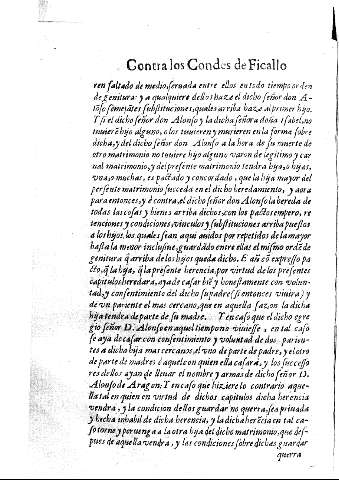 Contra los Condes de Ficallo
ren faltado de medio, seruada entre ellos en todo tiempo orden
de genitura: y a qualquiere dellos haze el dicho señor don A-
lõso semejãtes substituciones, quales arriba haze al primer hijo.
Y si el dicho señor don Alonso y la dicha señora doña Isabel, no
tuuierẽ hijo alguno, o los tuuieren y murieren en la forma sobre
dicha, y del dicho señor don Alonso a la hora de su muerte de
otro matrimonio no tuuiere hijo alguno varon de legitimo y car
nal matrimonio, y del presente matrimonio tendra hija, o hijas,
vna, o muchas, es pactado y concordado, que la hija mayor del
presente matrimonio succeda en el dicho heredamiento, y aora
para entonces, y è contra, el dicho señor don Alonso la hereda de
todas las cosas y bienes arriba dichos, con los pactos empero, re
tenciones y condiciones, vinculos y substituciones arriba puestos
a los hijos, los quales sian aqui auidos por repetidos de la mayor
hasta la menor inclusiue, guardado entre ellas el mismo ordẽ de
genitura q̃ arriba de los hijos queda dicho. E añ cõ expresso pa
cto, q̃ la hija, q̃ la presente herencia, por virtud de los presentes
capitulos heredara, aya de casar biẽ y honestamente con volun-
tad, y consentimiento del dicho su padre (si entonces viuira) y
de vn pariente el mas cercano, que en aquella sazon la dicha
hija tendra de parte de su madre. Y en caso que el dicho egre
gio señor D. Alonso en aquel tiempo no viuiesse, en tal caso
se aya de casar con consentimiento y voluntad de dos parien-
tes a dicha hija mas cercanos, el vno de parte de padre, y el otro
de parte de madre: è aquel con quien ella casara, y los successo
res dellos ayan de lleuar el nombre y armas de dicho señor D.
Alonso de Aragon: Y en caso que hiziere lo contrario aque-
lla tal en quien en virtud de dichos capitulos dicha herencia
vendra, y la condicion dellos guardar no querra, sea priuada
y hecha inhabil de dicha herencia, y la dicha herẽcia en tal ca-
so torne y peruenga a la otra hija del dicho matrimonio, que des-
pues de aquella vendra, y las condiciones sobredichas guardar
querra